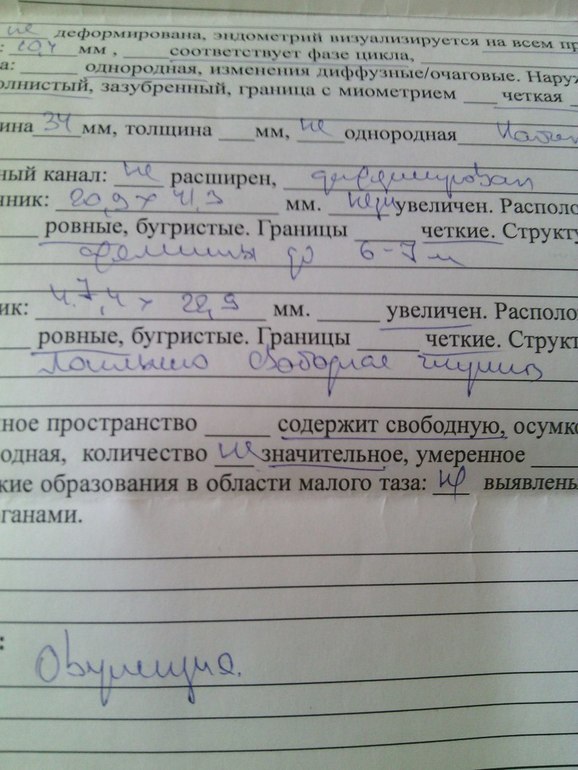 не деформирована, эндометрий визуализируется на всем пр
: 10,4 мм, ___ соответствует фазе цикла,
а: ___ однородная, изменения диффузные/очаговые. Наруж
олнистый, зазубренный, граница с миометрием ___ четкая
ина 34 мм, толщина ___ мм, не однородная
ный канал: не расширен,
чник: 20,9 х 41,3 мм. увеличен. Располо
___ ровные, бугристые. Границы ___ четкие. Структу
до 6-7 м
ик: 47,4 х 28,9 мм. ___ увеличен. Располо
___ ровные, бугристые. Границы ___ четкие. Структ
свободная
ное пространство ___ содержит свободную, осумко
одная, количество не значительное, умеренное ___
кие образования в области малого таза: не выявлены
ганами.
:
Овуляция.